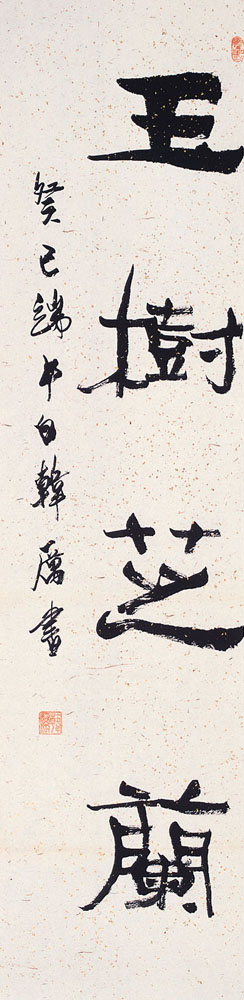 玉樹芝蘭
癸巳端午白韓厲書